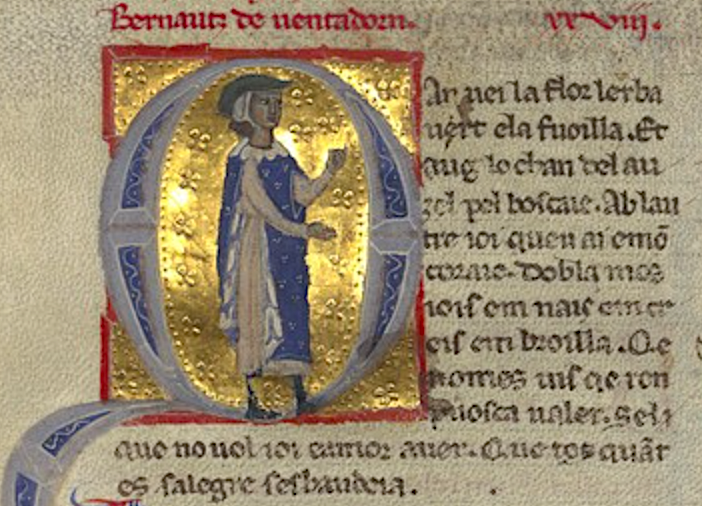 Bernautz de uentadorn. xxviii.
Qan uei la flor lerba
uert e la fuoilla. Et
aug lo chan del au
zel pel boscaie. Ab lau
tre ioi queu ai emō
coraie. Dobla mos
iois em nais em cr
eis em broilla. Qe
nomes uis qe ren
puosca ualer. Sel
quo no uol ioi et amor auer. Que tot quāt
es salegre sesbaudeia.